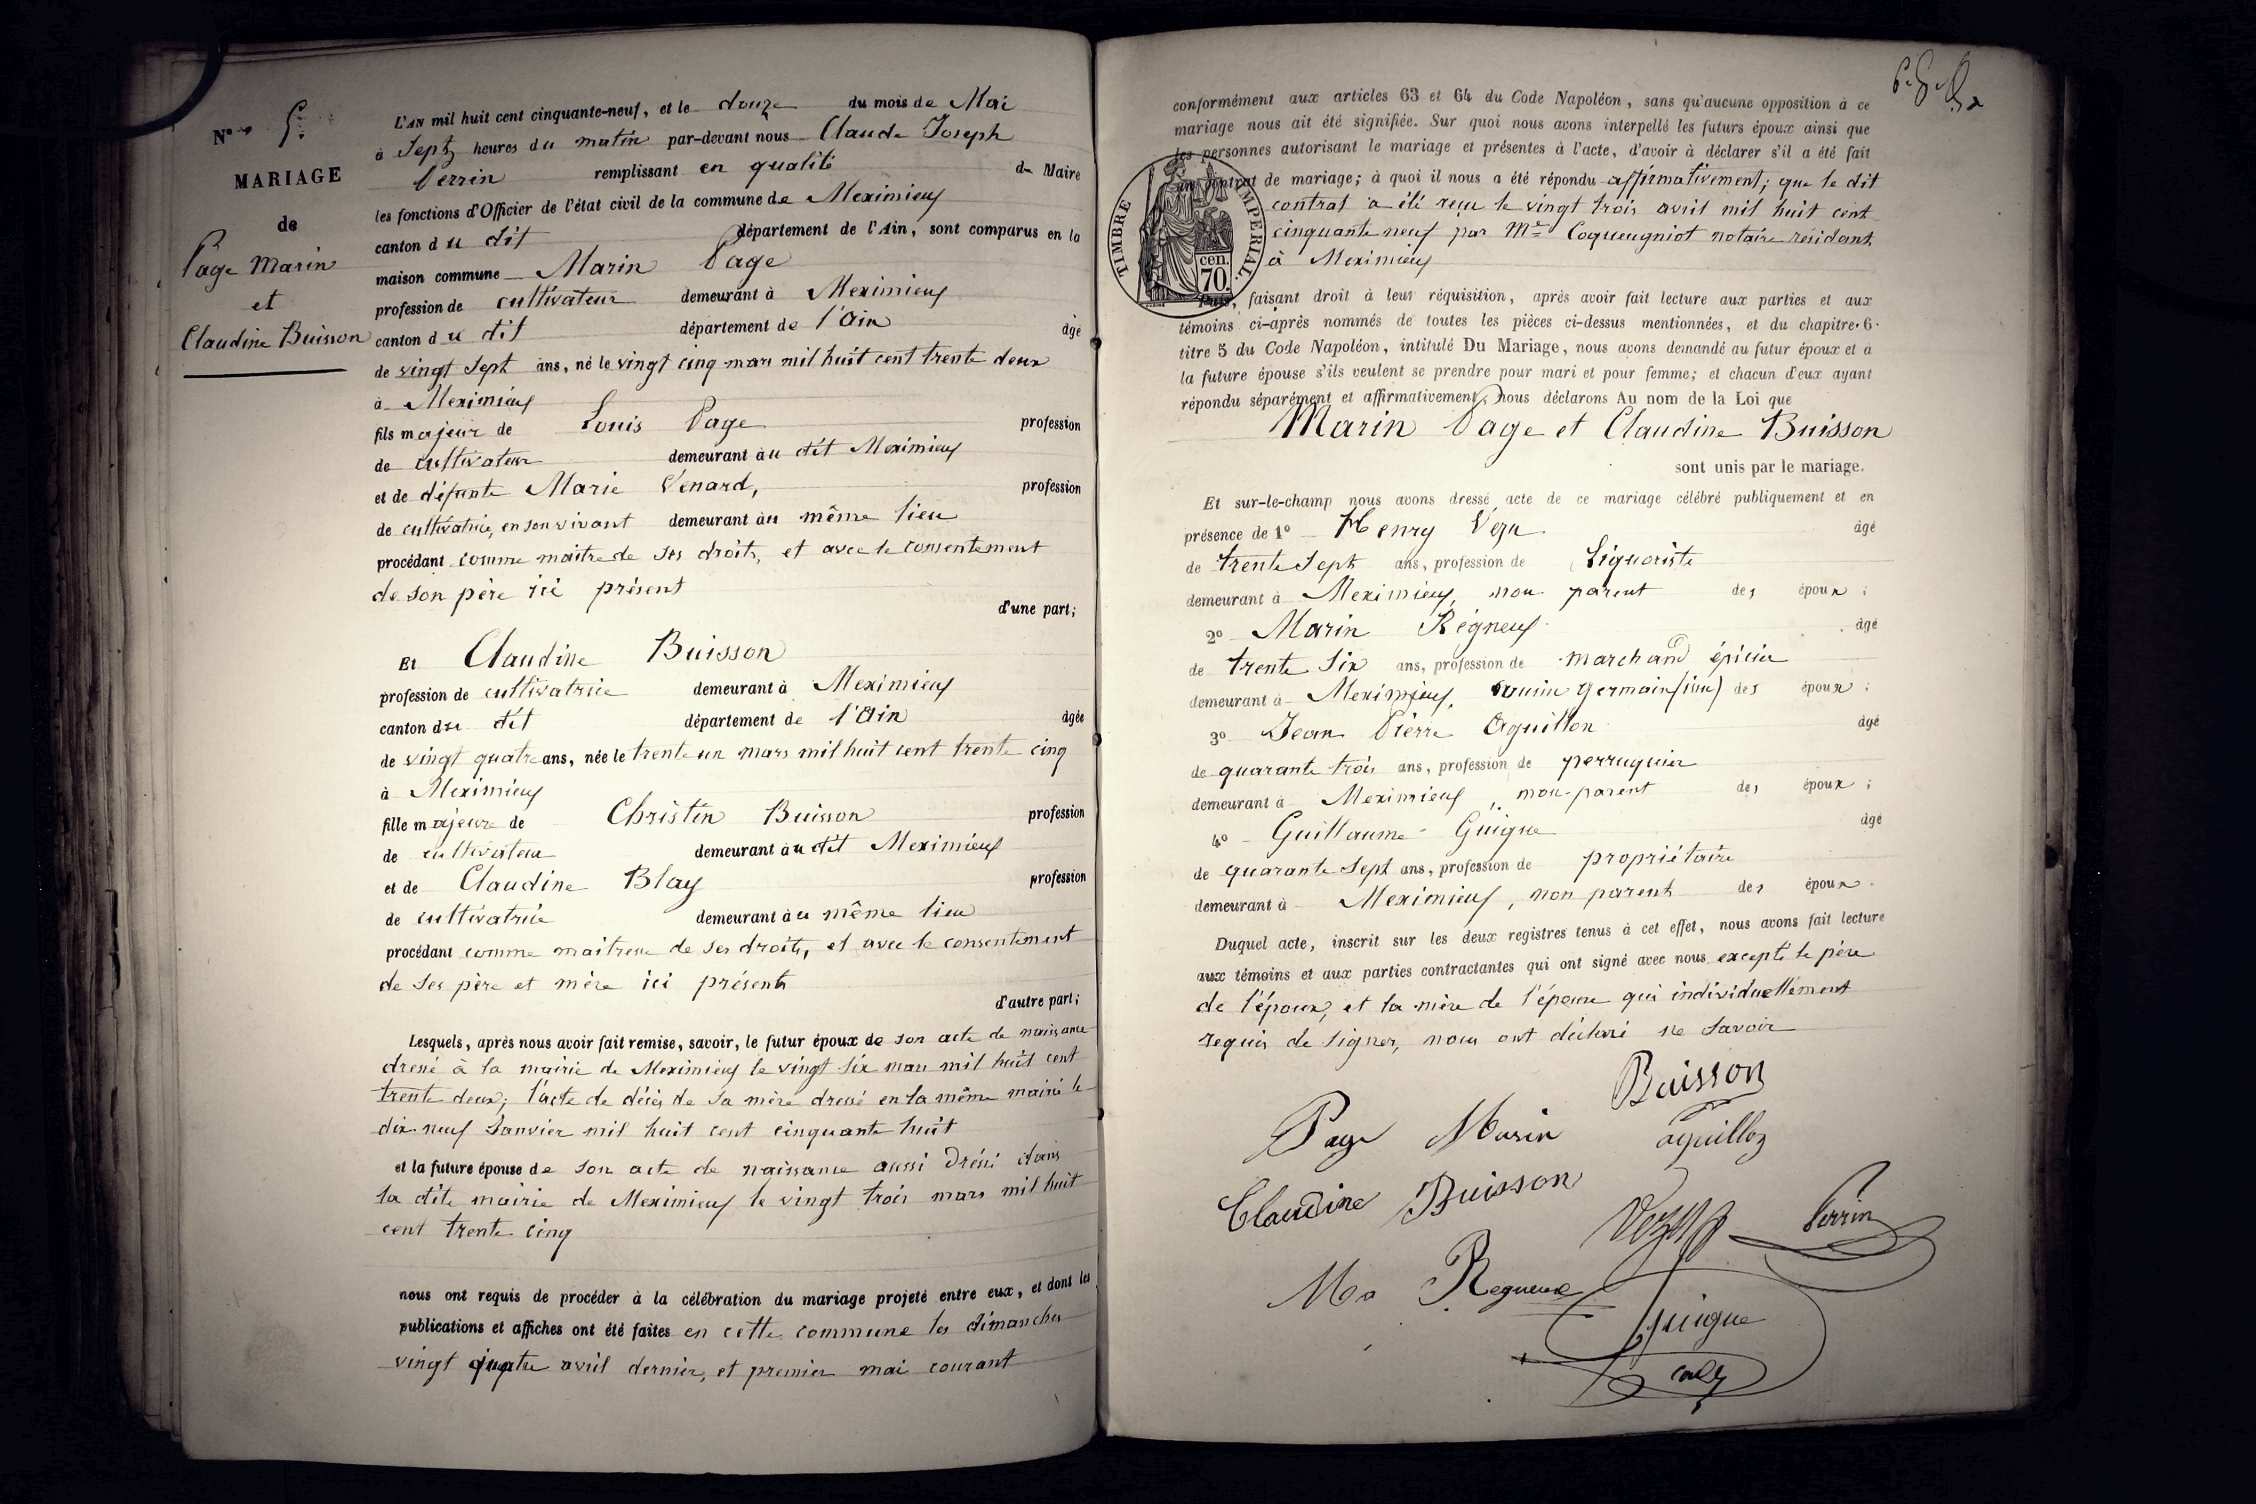 N° 5.
MARIAGE
de
Page Marin
et
Claudine Buisson
L'AN mil huit cent cinquante-neuf, et le douze du mois de Mai
à Sept heures du matin par-devant nous Claude Joseph
Perrin remplissant en qualité de Maire
les fonctions d'Officier de l'état civil de la commune de Meximieux
canton du dit département de l'Ain, sont comparus en la
maison commune Marin Page
profession de cultivateur demeurant à Meximieux
canton du dit département de l'Ain âgé
de vingt sept ans, né le vingt cinq mars mil huit cent trente deux
à Meximieux
fils majeur de Louis Page profession
de cultivateur demeurant au dit Meximieux
et de défunte Marie Venard, profession
de cultivatrice, en son vivant demeurant au même lieu
procédant comme maitre de ses droits, et avec le consentement
de son père ici présent
d'une part;
Et Claudine Buisson
profession de cultivatrice demeurant à Meximieux
canton du dit département de l'Ain âgée
de vingt quatre ans, née le trente un mars mil huit cent trente cinq
à Meximieux
fille majeure de Christin Buisson profession
de cultivateur demeurant au dit Meximieux
et de Claudine Blay profession
de cultivatrice demeurant au même lieu
procédant comme maitresse de ses droits, et avec le consentement
de ses père et mère ici présents
d'autre part;
Lesquels, après nous avoir fait remise, savoir, le futur époux de son acte de naissance
dressé à la mairie de Meximieux le vingt six mars mil huit cent
trente deux; l'acte de décès de sa mère dressé en la même mairie le
dix-neuf Janvier mil huit cent cinquante huit
et la future épouse de son acte de naissance aussi dressé dans
la dite mairie de Meximieux le vingt trois mars mil huit
cent trente cinq
nous ont requis de procéder à la célébration du mariage projeté entre eux, et dont les
publications et affiches ont été faites en cette commune les dimanches
vingt quatre avril dernier, et premier mai courant
conformément aux articles 63 et 64 du Code Napoléon, sans qu'aucune opposition à ce
mariage nous ait été signifiée. Sur quoi nous avons interpellé les futurs époux ainsi que
les personnes autorisant le mariage et présentes à l'acte, d'avoir à déclarer s'il a été fait
un contrat de mariage; à quoi il nous a été répondu affirmativement; que le dit
contrat a été reçu le vingt trois avril mil huit cent
cinquante neuf par Me Coqueugniot notaire résidant
à Meximieux
TIMBRE IMPÉRIAL.
cen.
70.
Puis, faisant droit à leur réquisition, après avoir fait lecture aux parties et aux
témoins ci-après nommés de toutes les pièces ci-dessus mentionnées, et du chapitre 6
titre 5 du Code Napoléon, intitulé Du Mariage, nous avons demandé au futur époux et à
la future épouse s'ils veulent se prendre pour mari et pour femme; et chacun d'eux ayant
répondu séparément et affirmativement, nous déclarons Au nom de la Loi que
Marin Page et Claudine Buisson
sont unis par le mariage.
Et sur-le-champ nous avons dressé acte de ce mariage célébré publiquement et en
présence de 1° Henry Vezu âgé
de trente sept ans, profession de Liquoriste
demeurant à Meximieux, non parent des époux;
2° Marin Régneux âgé
de trente six ans, profession de marchand épicier
demeurant à Meximieux, cousin germain (issu) des époux;
3° Jean Pierre Aguillon âgé
de quarante trois ans, profession de perruquier
demeurant à Meximieux, non-parent des époux;
4° Guillaume Guigue âgé
de quarante sept ans, profession de propriétaire
demeurant à Meximieux, non parent des époux.
Duquel acte, inscrit sur les deux registres tenus à cet effet, nous avons fait lecture
aux témoins et aux parties contractantes qui ont signé avec nous excepté le père
de l'époux, et la mère de l'épouse qui individuellement
requis de signer, nous ont déclaré ne savoir
Buisson
Page Marin aguillon
Claudine Buisson
Vezu Perrin
Ma Regneux
Guigue